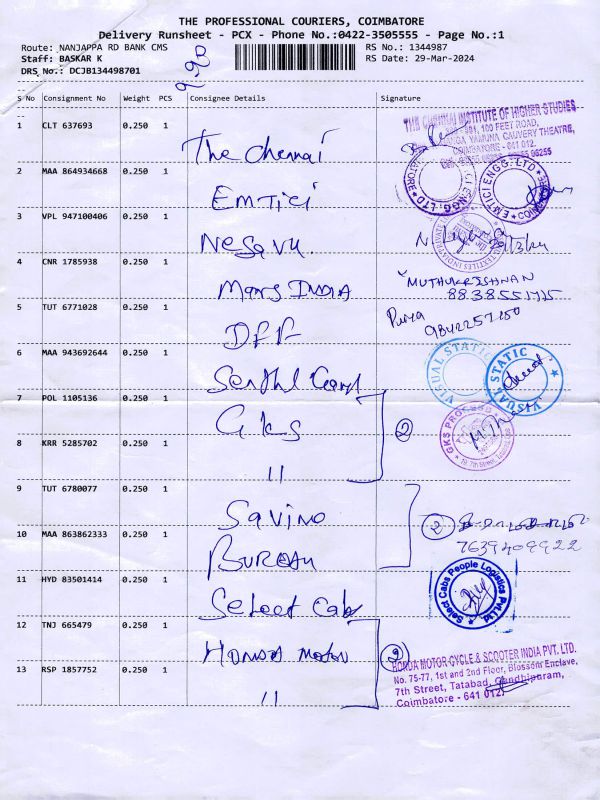 THE PROFESSIONAL COURIERS, COIMBATORE
Delivery Runsheet - PCX - Phone No.:0422-3505555 - Page No.:1
Route: NANJAPPA RD BANK CMS RS No.: 1344987
Staff: BASKAR K RS Date: 29-Mar-2024
DRS No.: DCJB134498701
S No Consignment No Weight PCS Consignee Details Signature
1 CLT 637693 0.250 1 The Chennai
THE CHENNAI INSTITUTE OF HIGHER STUDIES
100 FEET ROAD,
YAMUNA CAUVERY THEATRE,
COIMBATORE - 641 012.
2 MAA 864934668 0.250 1 EMTICI
EMTICI ENGG. LTD COIMBATORE
3 VPL 947100406 0.250 1 Nesavu
4 CNR 1785938 0.250 1 Mars INDIA MUTHUKRISHNAN
5 TUT 6771028 0.250 1 DFF Priya
9842257160
6 MAA 943692644 0.250 1 Senthil
VISUAL STATIC
VISUAL STATIC
7 POL 1105136 0.250 1 Gks 2
GKS
8 KRR 5285702 0.250 1 11
9 TUT 6780077 0.250 1 Savino 2
7639409922
10 MAA 863862333 0.250 1 BUREAU
11 HYD 83501414 0.250 1 Select Cabs
Select Cabs People Logistics Pvt Ltd
12 TNJ 665479 0.250 1 Honda motor 2
HONDA MOTOR CYCLE & SCOOTER INDIA PVT. LTD.
No. 75-77, 1st and 2nd Floor, Blossom Enclave,
13 RSP 1857752 0.250 1 11
7th Street, Tatabad, Gandhipuram,
Coimbatore - 641 012